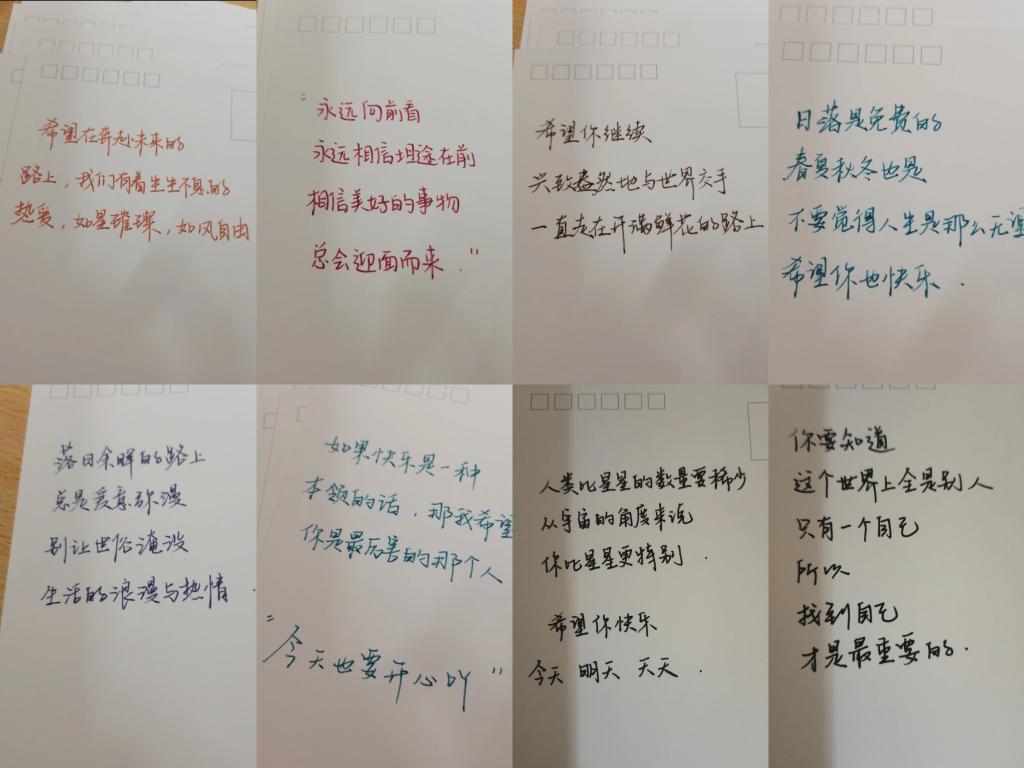 希望在奔赴未来的
路上，我们有着生生不息的
热爱，如星璀璨，如风自由
"永远向前看
永远相信坦途在前
相信美好的事物
总会迎面而来．"
希望你继续
兴致盎然地与世界交手
一直走在开满鲜花的路上
日落是免费的
春夏秋冬也是
不要觉得人生是那么无望
希望你也快乐．
落日余晖的路上
总是爱意弥漫
别让世俗淹没
生活的浪漫与热情．
如果快乐是一种
本领的话，那我希望
你是最厉害的那个人
"今天也要开心吖"
人类比星星的数量要稀少
从宇宙的角度来说
你比星星更特别．
希望你快乐
今天 明天 天天．
你要知道
这个世界上全是别人
只有一个自己
所以
找到自己
才是最重要的．